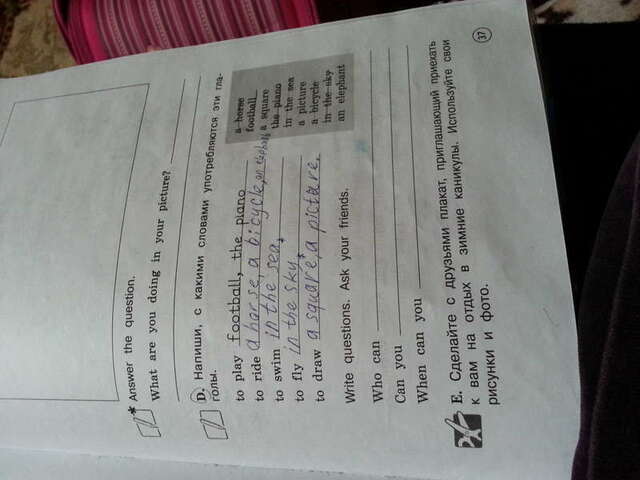 * Answer the question.
What are you doing in your picture?
D. Напиши, с какими словами употребляются эти гла-
голы.
to play football, the piano
to ride a horse, a bicycle, an elephant
to swim in the sea,
to fly in the sky,
to draw a square, a picture,
a horse
football
a square
the piano
in the sea
a picture
a bicycle
in the sky
an elephant
Write questions. Ask your friends.
Who can
Can you
When can you
E. Сделайте с друзьями плакат, приглашающий приехать
к вам на отдых в зимние каникулы. Используйте свои
рисунки и фото.
37